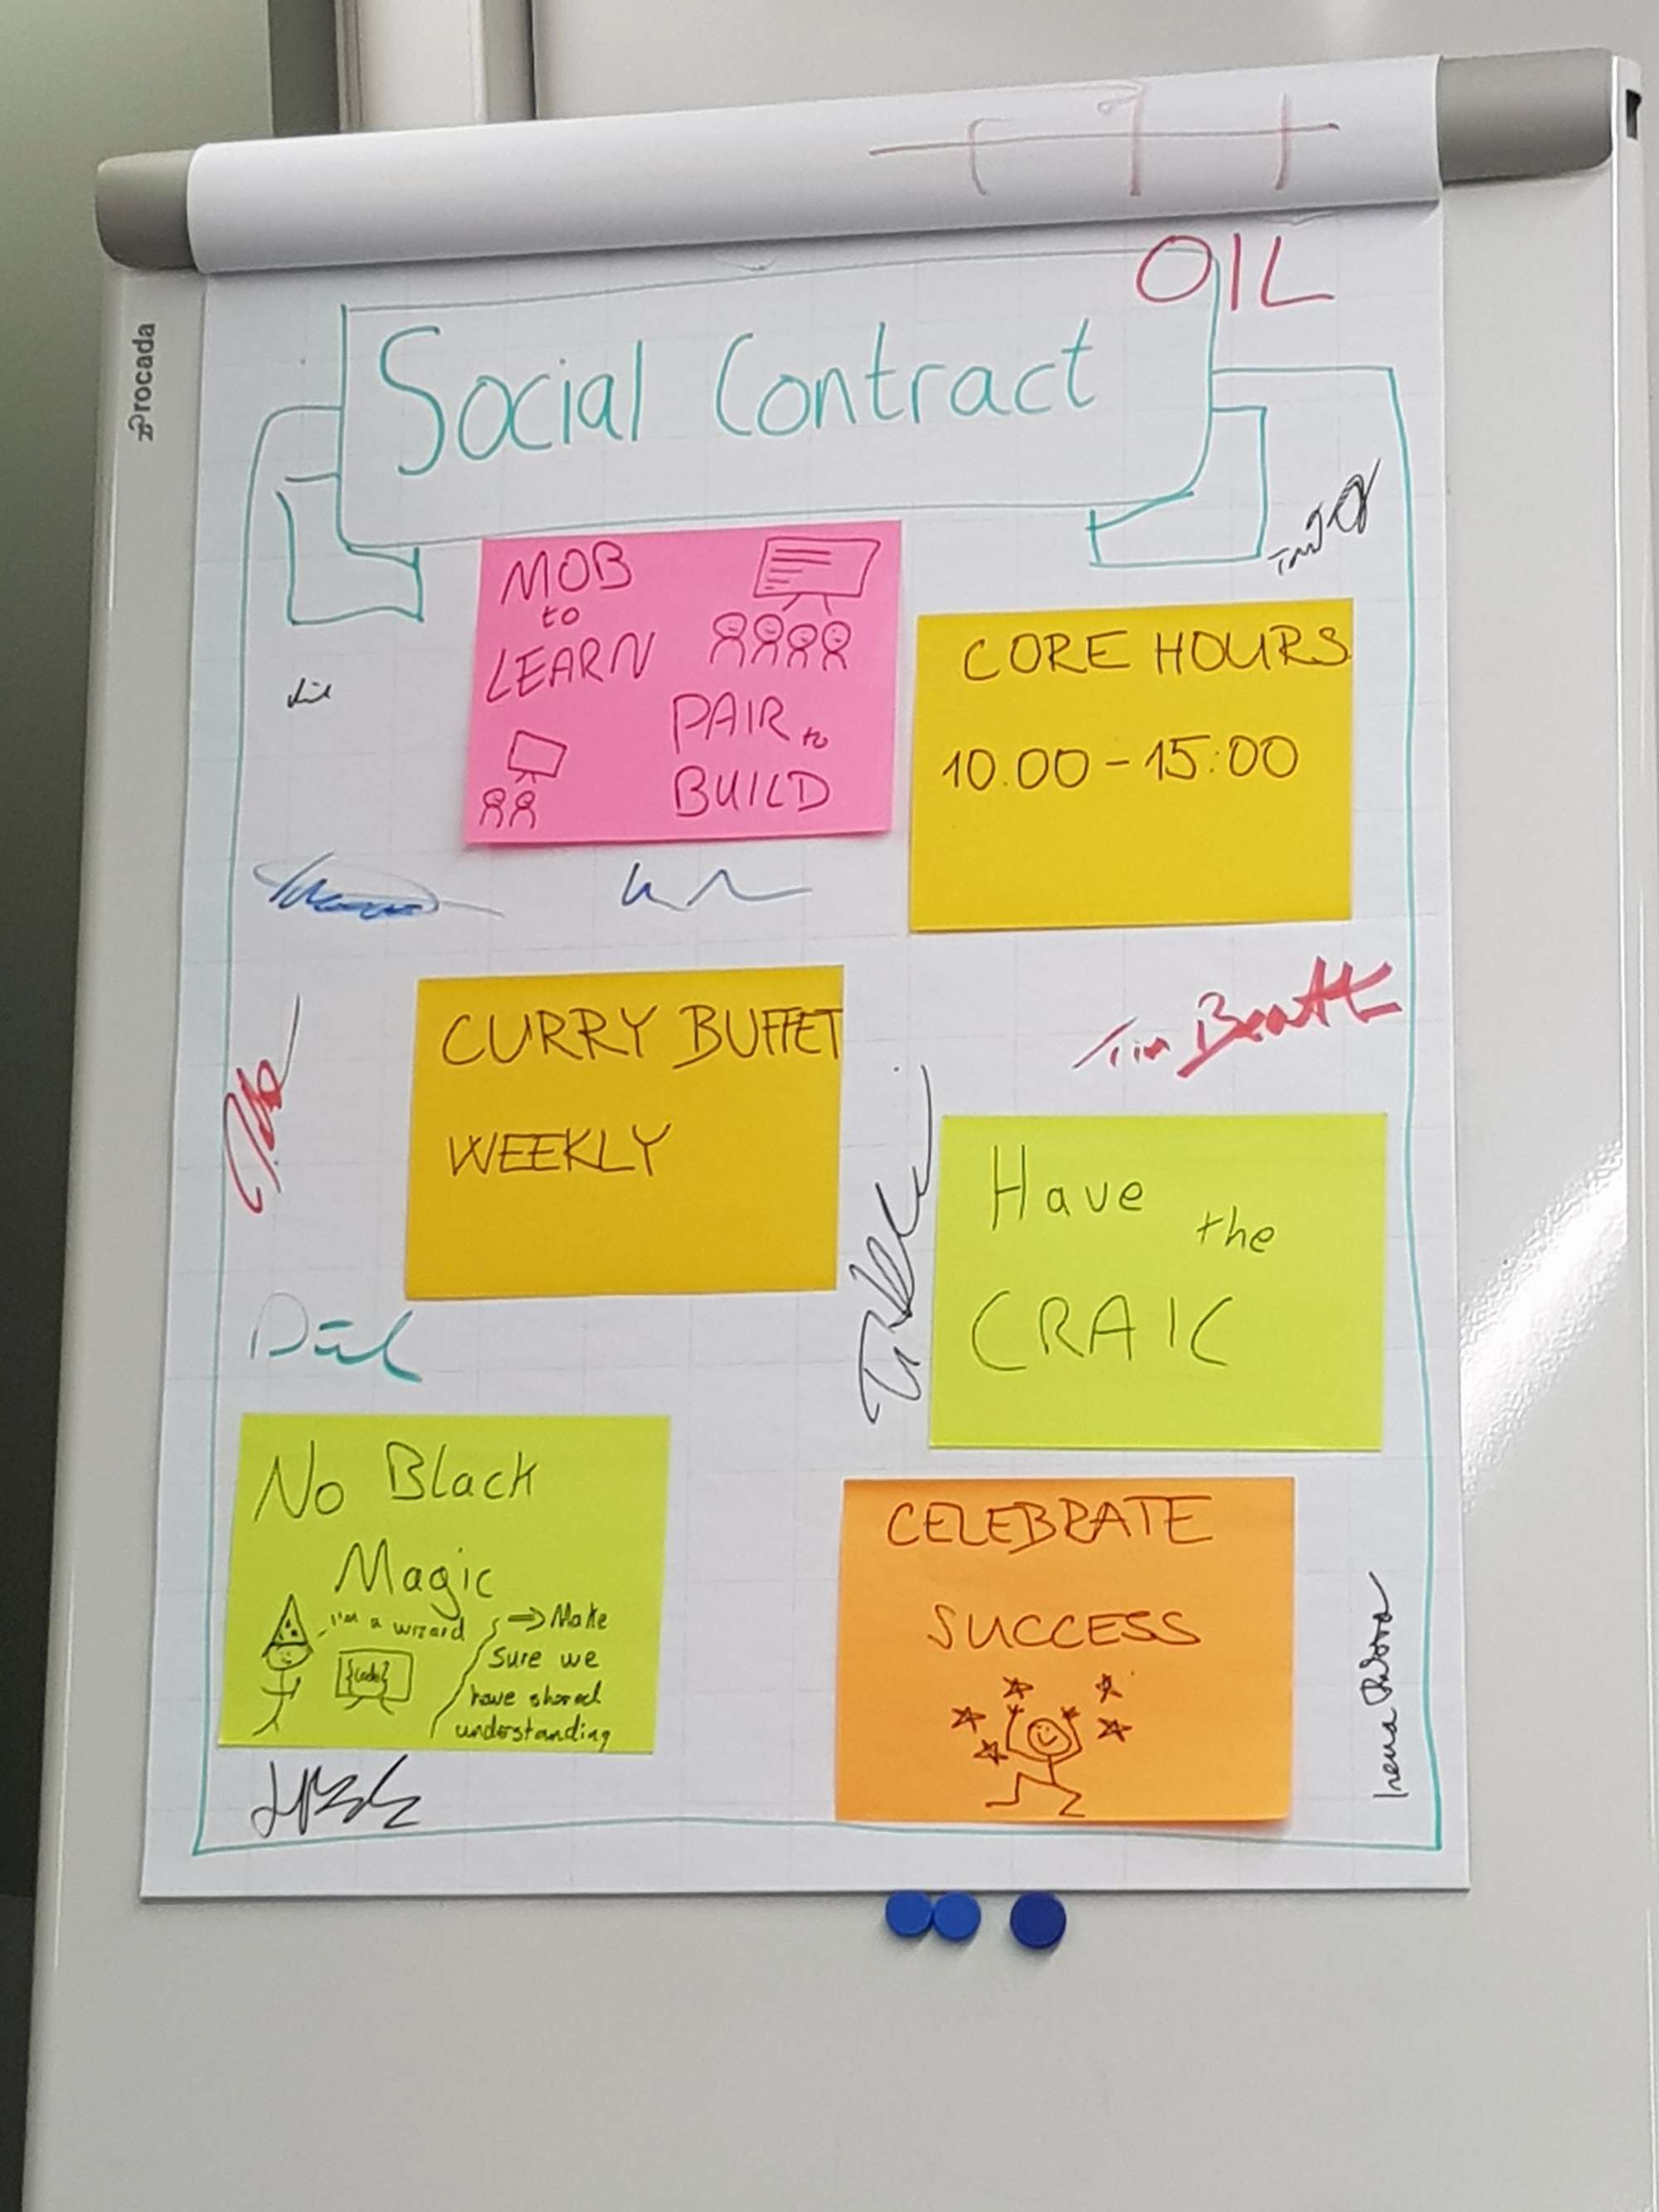 rocada
OIL
Social Contract
MOB
to
LEARN
PAIR to
BUILD
CORE HOURS
10.00 - 15:00
CURRY BUFFET
WEEKLY
Tim Beatt
Have the
CRAIC
No Black
Magic
I'm a wizard
{code}
⇒ Make
sure we
have shared
understanding
CELEBRATE
SUCCESS
Irena